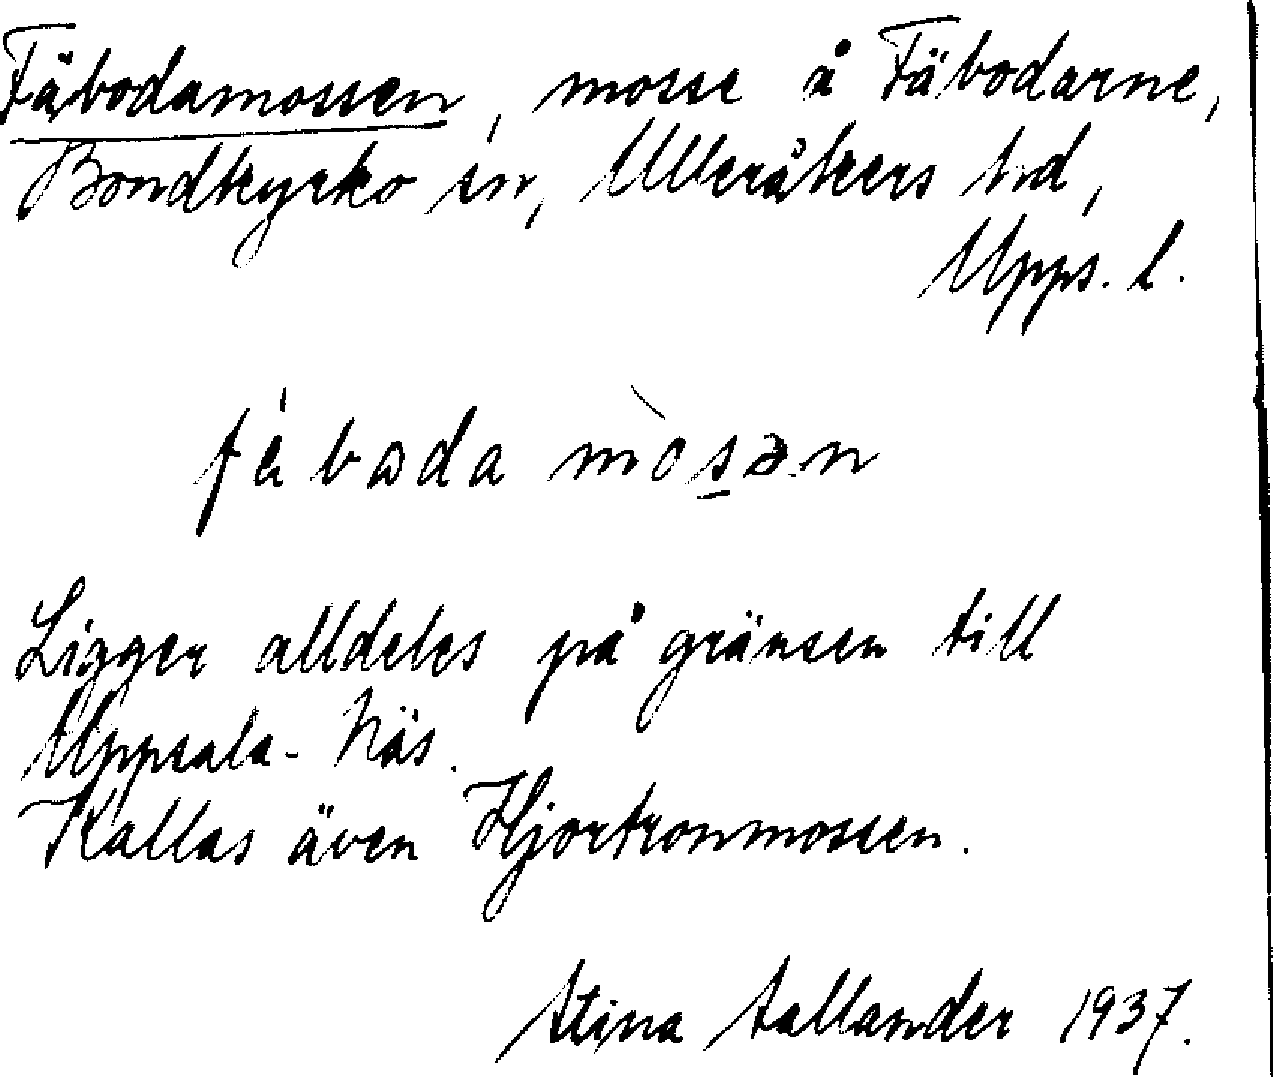 Fäbodamossen, mosse å Fäbodarne,
Bondkyrko sn, Ulleråkers hd,
Upps. l.
fä́bɷda mòsən
Ligger alldeles på gränsen till
Uppsala-Näs.
Kallas även Hjortronmossen.
Stina Sallander 1937.